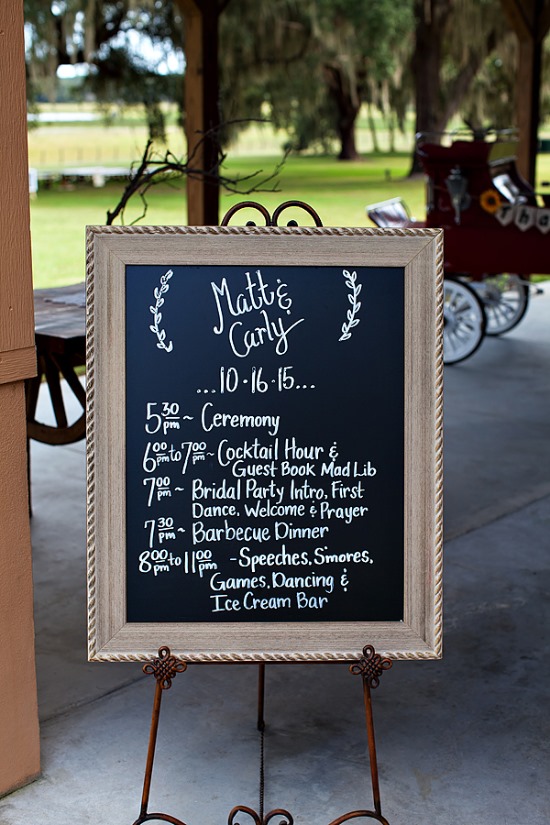 Matt &
Carly
...10·16·15...
5:30 pm ~ Ceremony
6:00 pm to 7:00 pm ~ Cocktail Hour &
Guest Book Mad Lib
7:00 pm ~ Bridal Party Intro, First
Dance, Welcome & Prayer
7:30 pm ~ Barbecue Dinner
8:00 pm to 11:00 pm - Speeches, S'mores,
Games, Dancing &
Ice Cream Bar
Tha